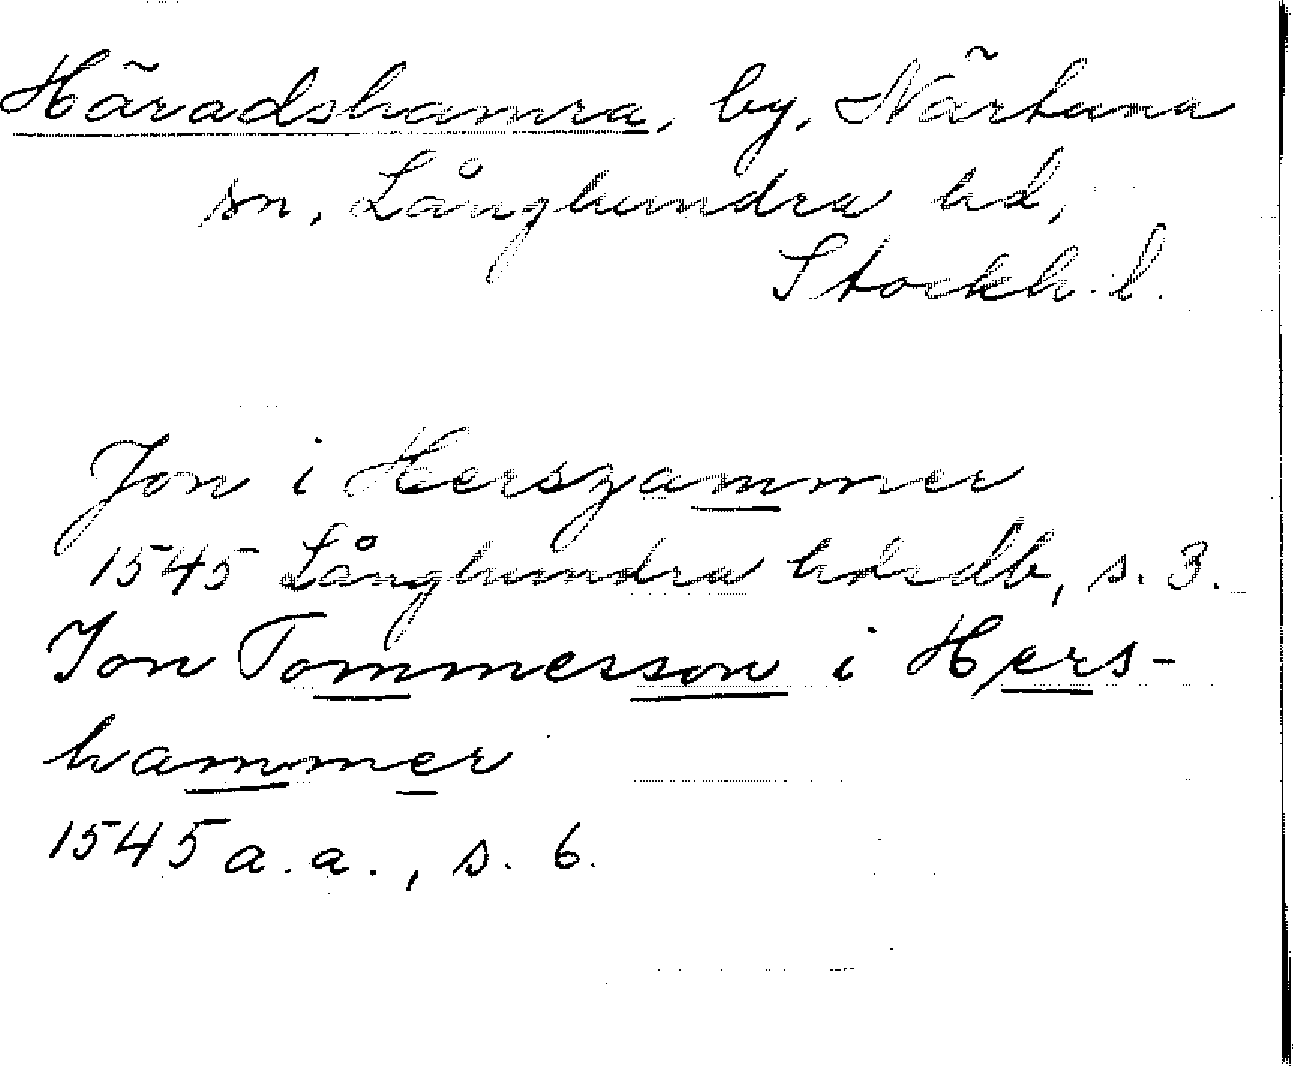 Häradshamra, by, Närtuna
sn, Långhundra hd,
Stockh. l.
Jon i Herszammer
1545 Långhundra hdsdb, s. 3.
Jon Tommersson i Hers-
hammer
1545 a. a., s. 6.